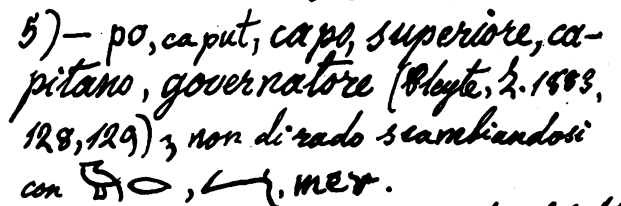 5) — po, caput, capo, superiore, ca-
pitano, governatore (Pleyte, Z. 1883,
128, 129); non di rado scambiandosi
con , , mer.